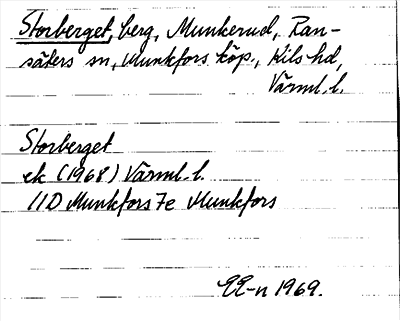 Storberget, berg, Munkerud, Ran-
säters sn, Munkfors köp., Kils hd,
Värml. l.
Storberget
ek (1968) Värml. l.
11D Munkfors 7e Munkfors
EE-n 1969.